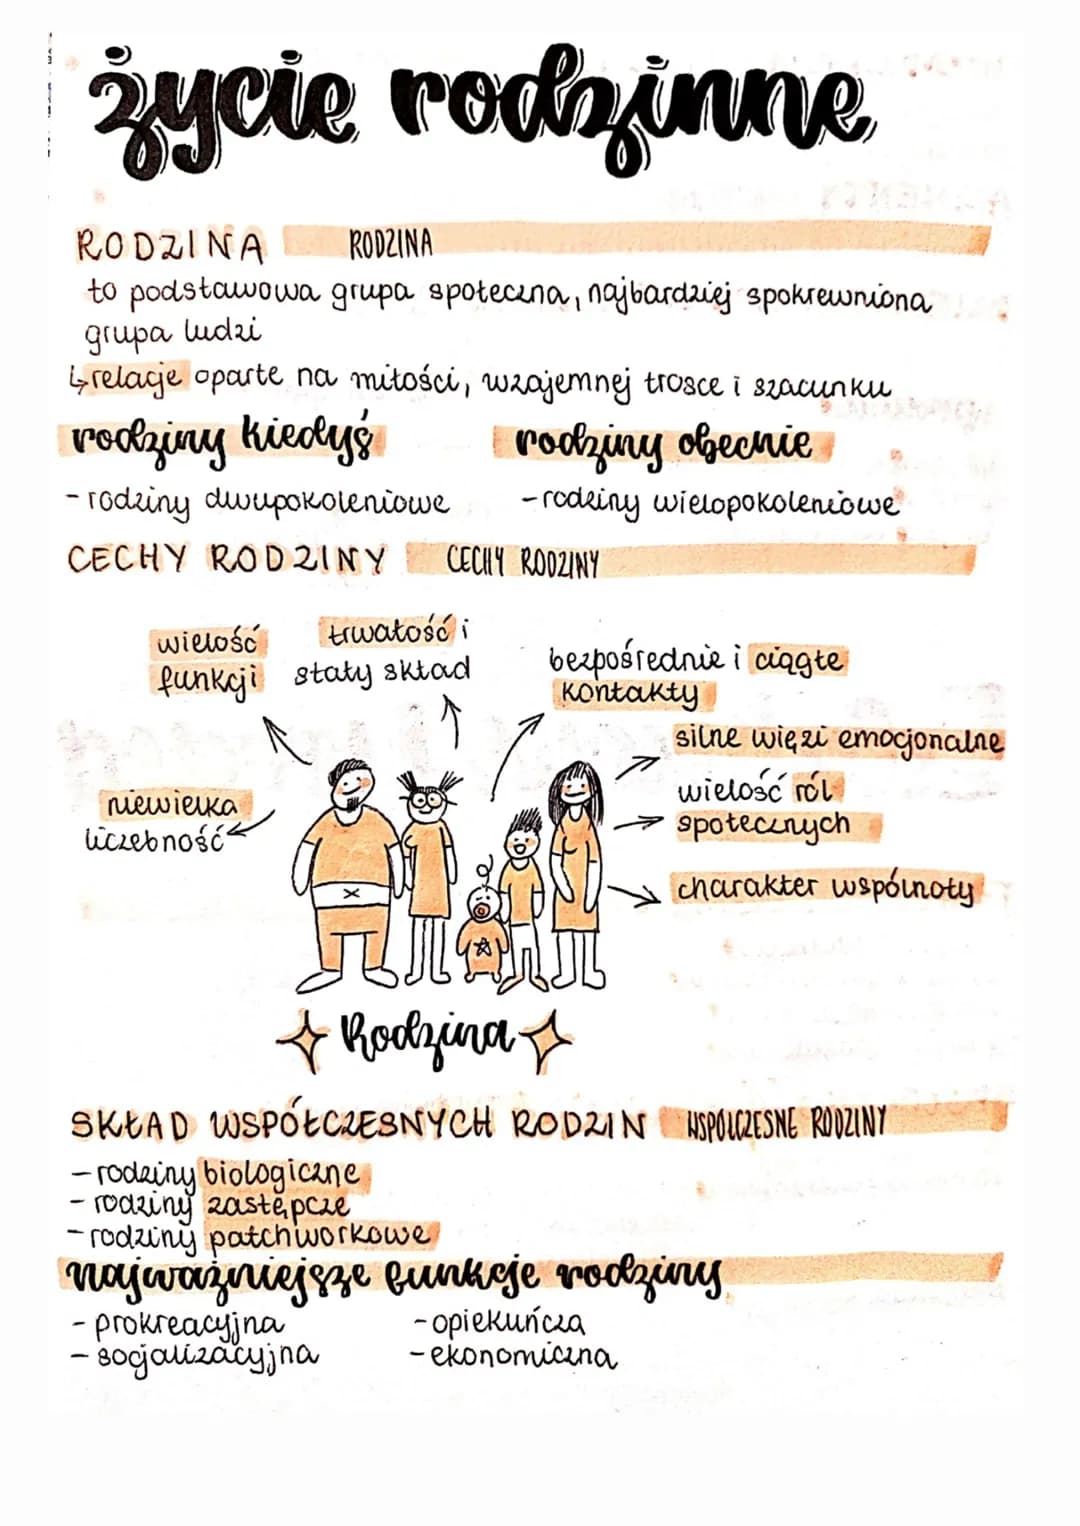 życie rodzinne
RODZINA RODZINA
to podstawowa grupa społeczna, najbardziej spokrewniona
grupa ludzi
↳ relacje oparte na miłości, wzajemnej trosce i szacunku
rodziny kiedyś rodziny obecnie
- rodziny dwupokoleniowe - rodziny wielopokoleniowe
CECHY RODZINY CECHY RODZINY
wielość
funkcji
trwałość i
stały skład
bezpośrednie i ciągłe
kontakty
silne więzi emocjonalne
niewielka
liczebność
wielość ról
społecznych
charakter wspólnoty
Rodzina
SKŁAD WSPÓŁCZESNYCH RODZIN WSPÓŁCZESNE RODZINY
- rodziny biologiczne
- rodziny zastępcze
- rodziny patchworkowe
najważniejsze funkcje rodziny
- prokreacyjna - opiekuńcza
- socjalizacyjna - ekonomiczna